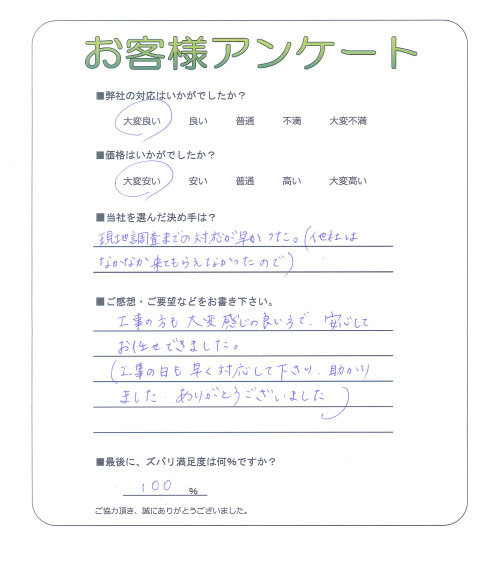 お客様アンケート
■弊社の対応はいかがでしたか?
大変良い 良い 普通 不満 大変不満
■価格はいかがでしたか?
大変安い 安い 普通 高い 大変高い
■当社を選んだ決め手は?
現地調査までの対応が早かった。(他社は
なかなか来てもらえなかったので)
■ご感想・ご要望などをお書き下さい。
工事の方も大変感じの良い方で、安心して
お任せできました。
(工事の日も早く対応して下さり、助かり
ました。ありがとうございました)
■最後に、ズバリ満足度は何%ですか?
100 %
ご協力頂き、誠にありがとうございました。